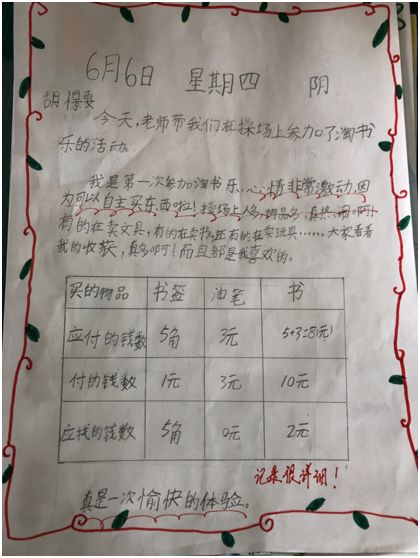 6月6日 星期四 阴
胡
今天,老师带我们在操场上参加了淘书
乐的活动。
我是第一次参加淘书乐,心情非常激动,因
为可以自主买东西啦!操场上人多,物品多,真热闹啊!
有的在卖文具,有的在卖书,还有的在卖玩具……大家看看
我的收获,真多啊!而且都是我喜欢的。
买的物品 书签 油笔 书
应付的钱数 5角 3元 5+3=8(元)
付的钱数 1元 3元 10元
应找的钱数 5角 0元 2元
记录很详细!
真是一次愉快的体验。